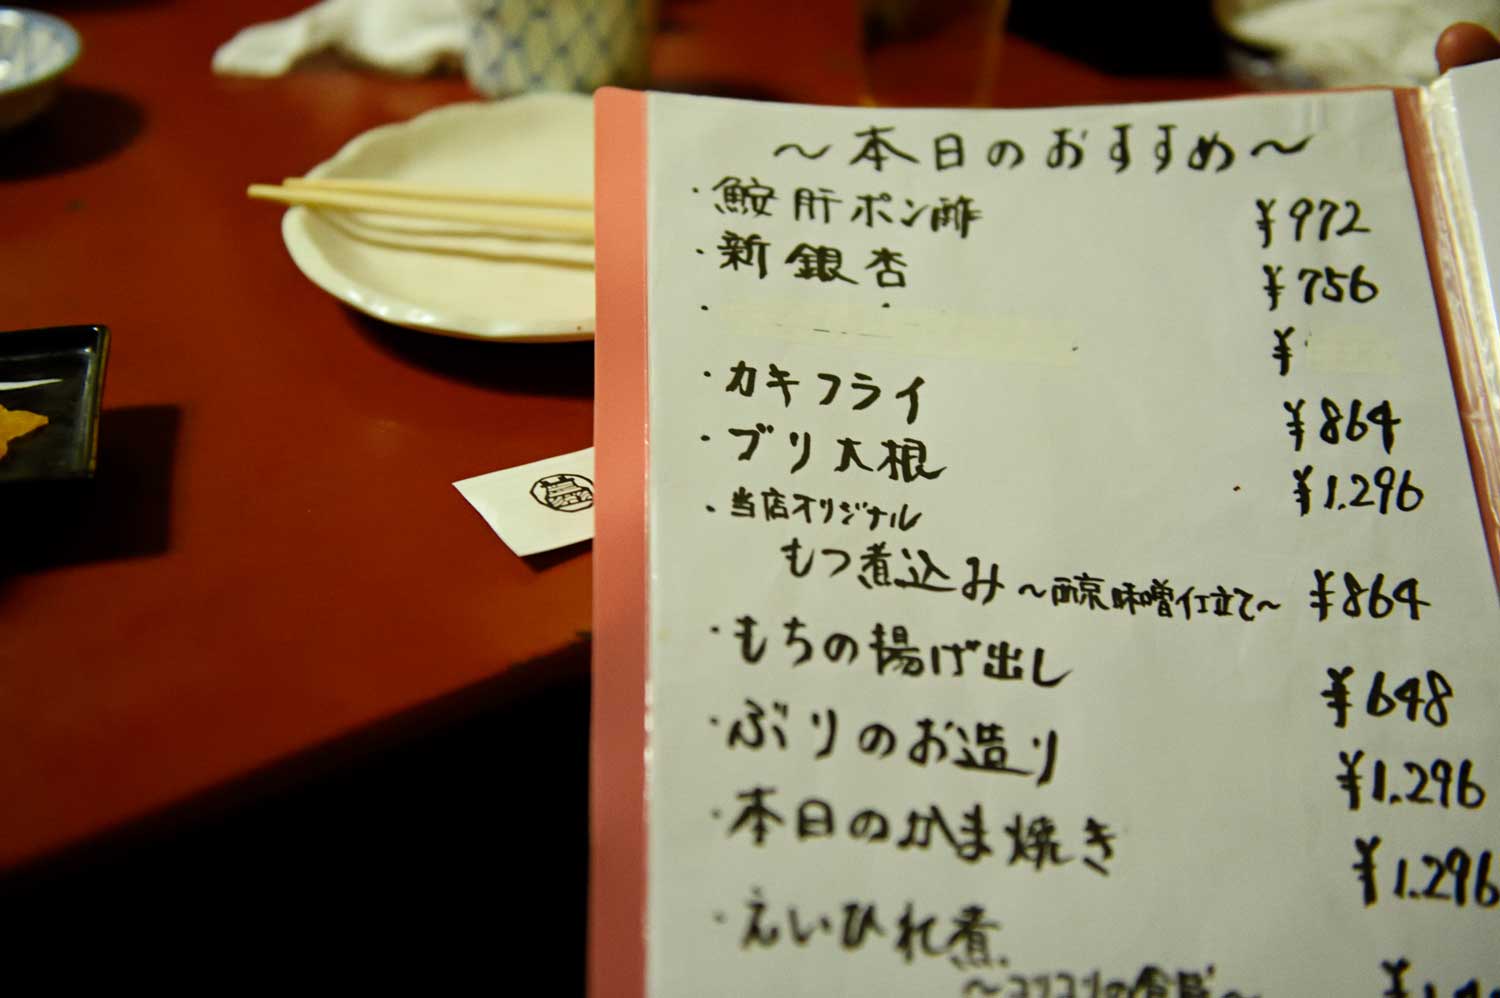 〜本日のおすすめ〜
・鮟肝ポン酢 ¥972
・新銀杏 ¥756
・ ¥
・カキフライ ¥864
・ブリ大根 ¥1.296
・当店オリジナル
もつ煮込み〜西京味噌仕立て〜 ¥864
・もちの揚げ出し ¥648
・ぶりのお造り ¥1.296
・本日のかま焼き ¥1.296
・えいひれ煮
〜コリコリの食感〜